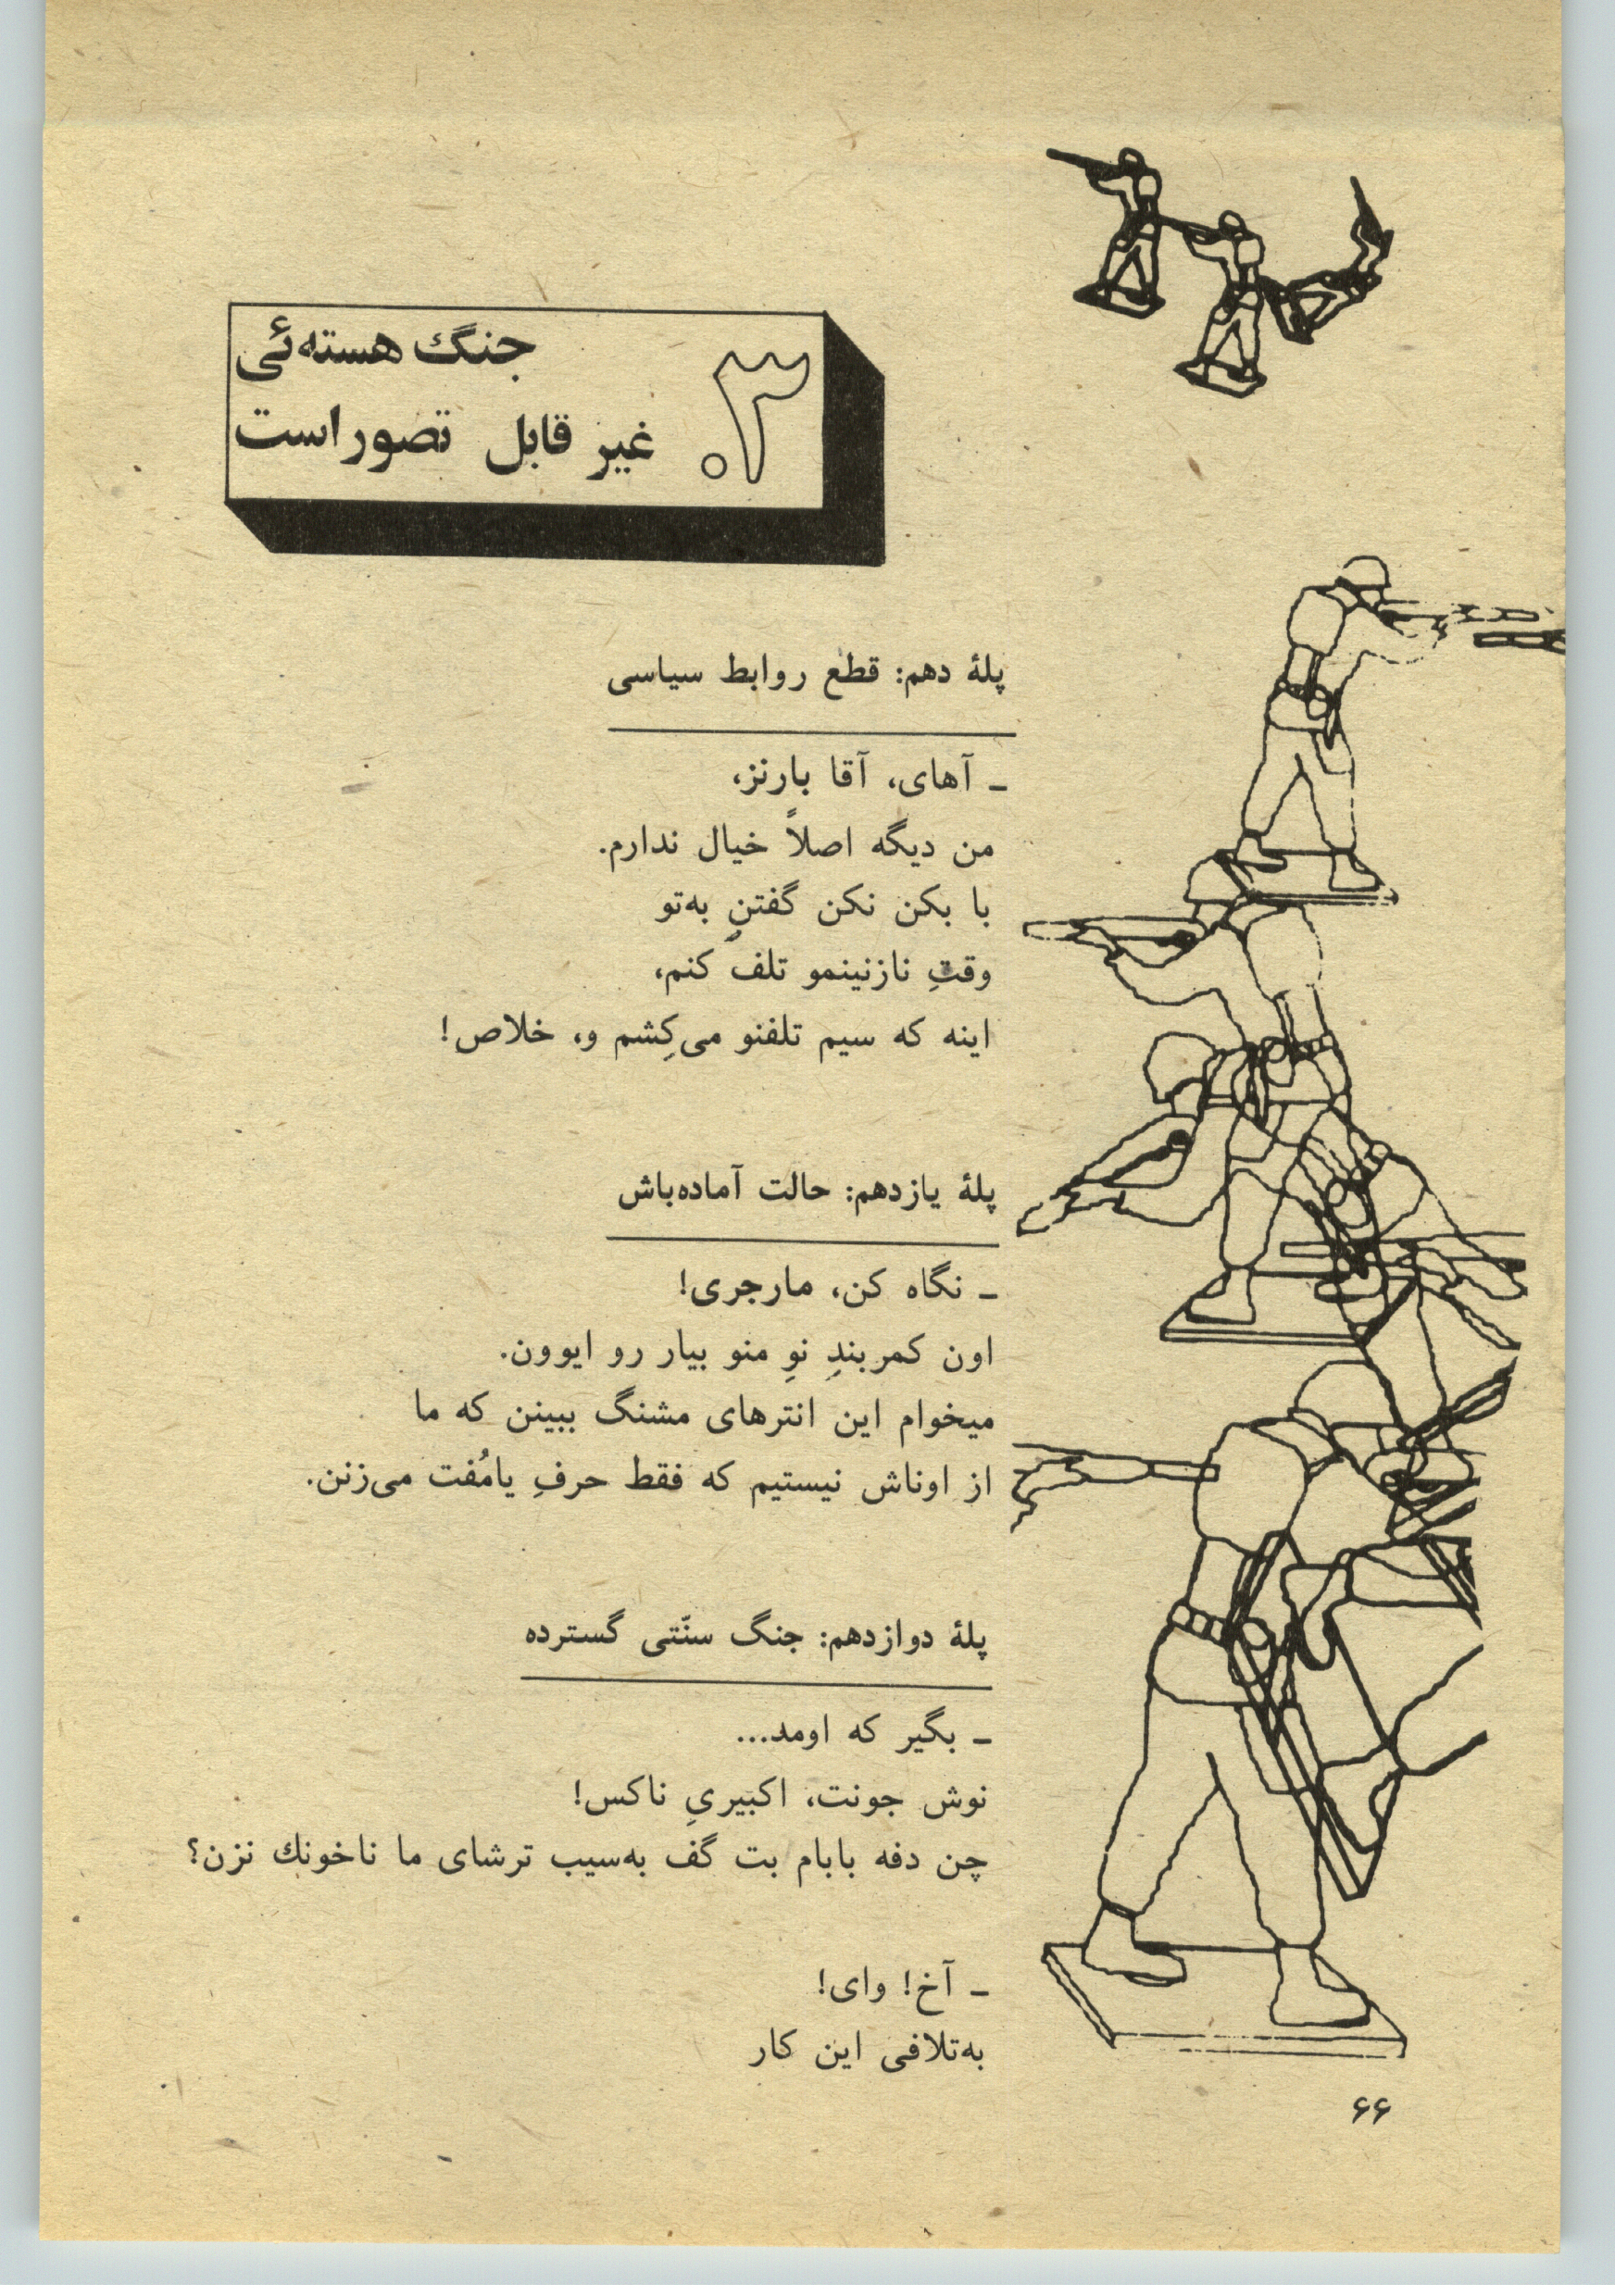 ۳.
جنگ هسته‌ئی
غیر قابل تصور است
پلهٔ دهم: قطع روابط سیاسی
ـ آهای، آقا بارنز،
من دیگه اصلاً خیال ندارم.
با بکن نکن گفتنِ به‌تو
وقتِ نازنینمو تلف کنم،
اینه که سیم تلفنو می‌کِشم و، خلاص!
پلهٔ یازدهم: حالت آماده‌باش
ـ نگاه کن، مارجری!
اون کمربندِ نوِ منو بیار رو ایوون.
میخوام این انترهای مشنگ ببینن که ما
از اوناش نیستیم که فقط حرفِ یامُفت می‌زنن.
پلهٔ دوازدهم: جنگ سنّتی گسترده
ـ بگیر که اومد...
نوش جونت، اکبیریِ ناکس!
چن دفه بابام بت گف به‌سیب ترشای ما ناخونك نزن؟
ـ آخ! وای!
به‌تلافی این کار
۶۶